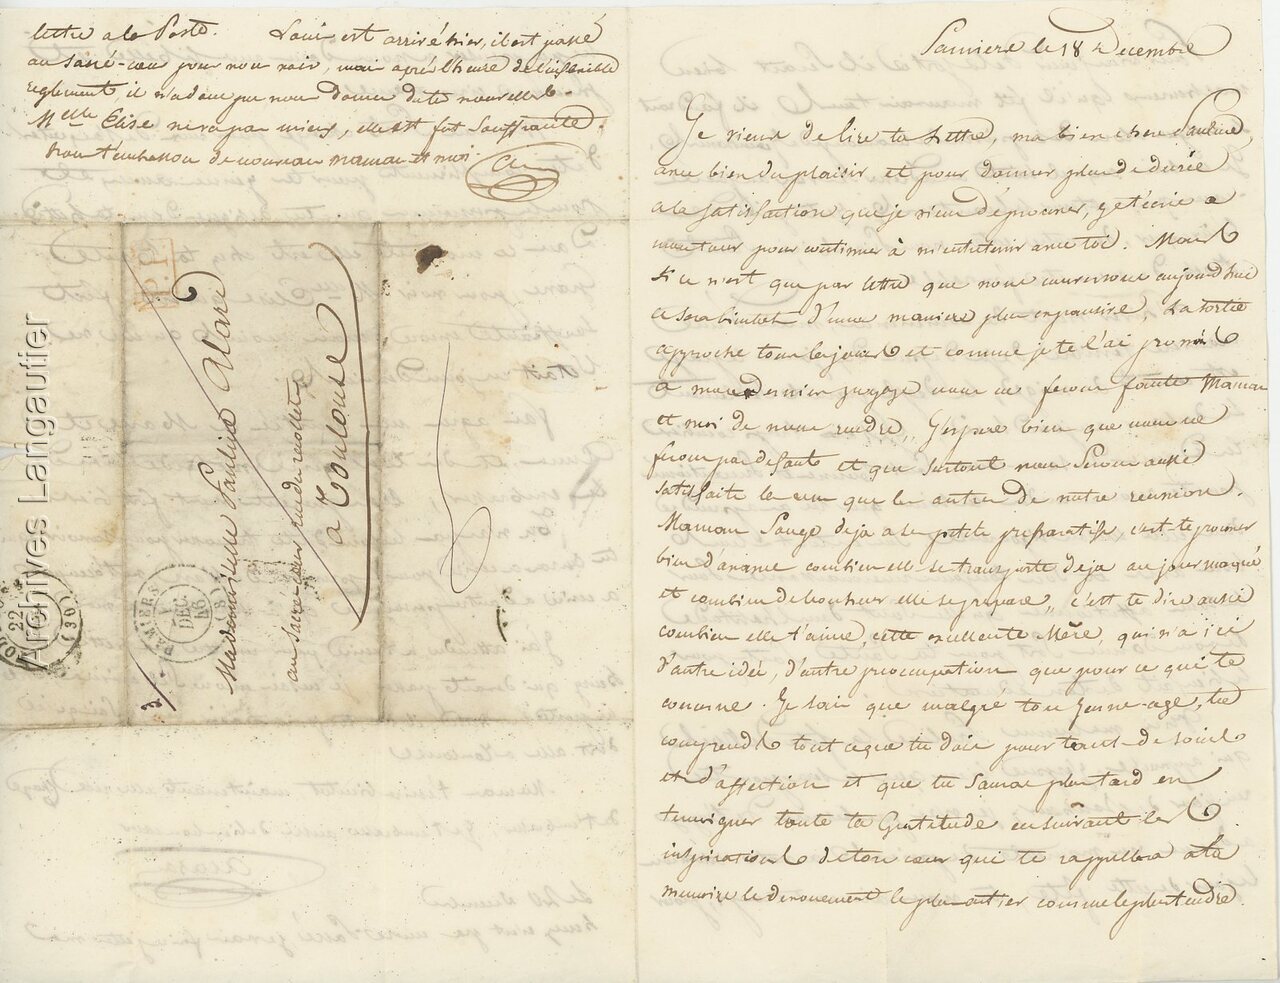 lettre a la Poste. Louis est arrivé hier, il est passé
au sacré-cœur pour nous voir, mais après l'heure de l'inflexible
reglement il n'a donc pu nous donner de tes nouvelles.
Melle Elise ne va pas mieux, elle est fort souffrante.
de nouveau maman et moi
Mademoiselle Pauline Alard
au sacré-cœur rue
a Toulouse
P.P.
PAMIERS
DEC.
46
(8)
22
(30)
Archives Langautier
Pamiers le 18 Décembre
Je viens de lire ta lettre, ma bien chere Pauline,
avec bien du plaisir et pour donner plus de durée
a la satisfaction que je viens d'éprouver, je t'écris a
mon tour pour continuer à m'entretenir avec toi. Mais
si ce n'est que par lettre que nous causerons aujourd'hui
ce sera bientot d'une maniere plus expansive, la sortie
approche tous les jours et comme je te l'ai promis
a mon dernier voyage nous ne ferons faute Maman
et moi de nous rendre, J'espere bien que nous ne
ferons pas defaut et que surtout nous serons aussi
satisfaits les uns que les autres de notre reunion.
Maman songe deja a ses petits preparatifs, c'est te prouver
bien d'avance combien elle se transporte deja au jour marqué
et combien de bonheur elle se prepare, c'est te dire aussi
combien elle t'aime, cette excellente Mère, qui n'a ici
d'autre idée, d'autre préocupation que pour ce qui te
concerne. Je sais que malgré ton jeune age, tu
comprends tout ce que tu dois pour tant de soins
et d'affection et que tu sauras plus tard en
temoigner toute ta Gratitude en suivant les
inspirations de ton cœur qui te rappellera a la
memoire le devouement le plus entier comme le plus tendre.